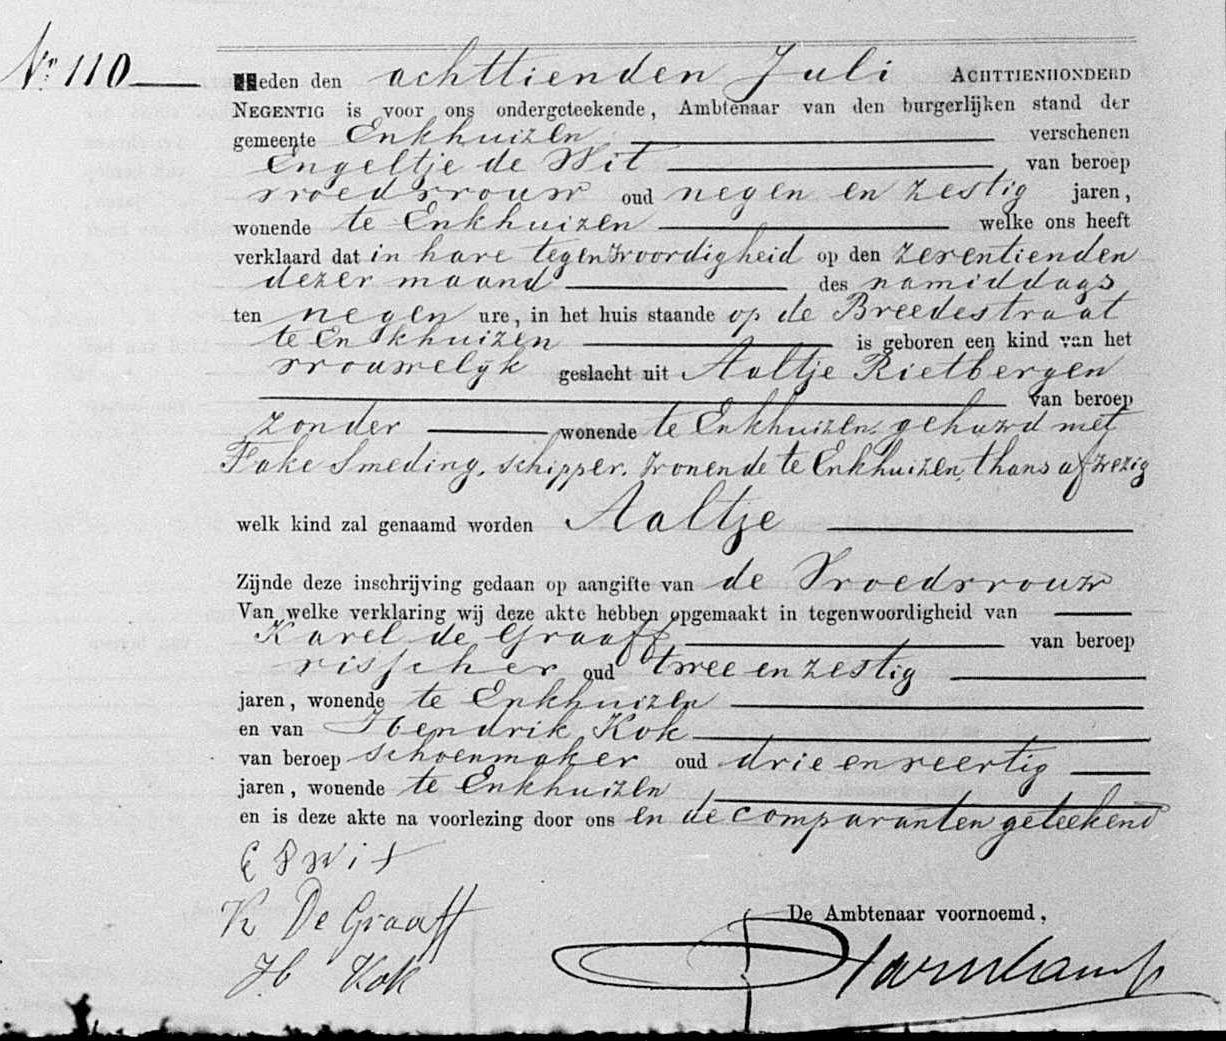 No 110
Heden den achttienden Juli ACHTTIENHONDERD
NEGENTIG is voor ons ondergeteekende, Ambtenaar van den burgerlijken stand der
gemeente Enkhuizen verschenen
Engeltje de Wit van beroep
vroedvrouw oud negen en zestig jaren,
wonende te Enkhuizen welke ons heeft
verklaard dat in hare tegenwoordigheid op den zeventienden
dezer maand des namiddags
ten negen ure, in het huis staande op de Breedestraat
te Enkhuizen is geboren een kind van het
vrouwelijk geslacht uit Aaltje Rietbergen
van beroep
zonder wonende te Enkhuizen, gehuwd met
Fake Smeding, schipper, wonende te Enkhuizen, thans afwezig
welk kind zal genaamd worden Aaltje
Zijnde deze inschrijving gedaan op aangifte van de Vroedvrouw
Van welke verklaring wij deze akte hebben opgemaakt in tegenwoordigheid van
Karel de Graaff van beroep
visscher oud twee en zestig
jaren, wonende te Enkhuizen
en van Hendrik Kok
van beroep schoenmaker oud drie en veertig
jaren, wonende te Enkhuizen
en is deze akte na voorlezing door ons en de comparanten geteekend
E D Wit
K De Graaff
De Ambtenaar voornoemd,
H Kok